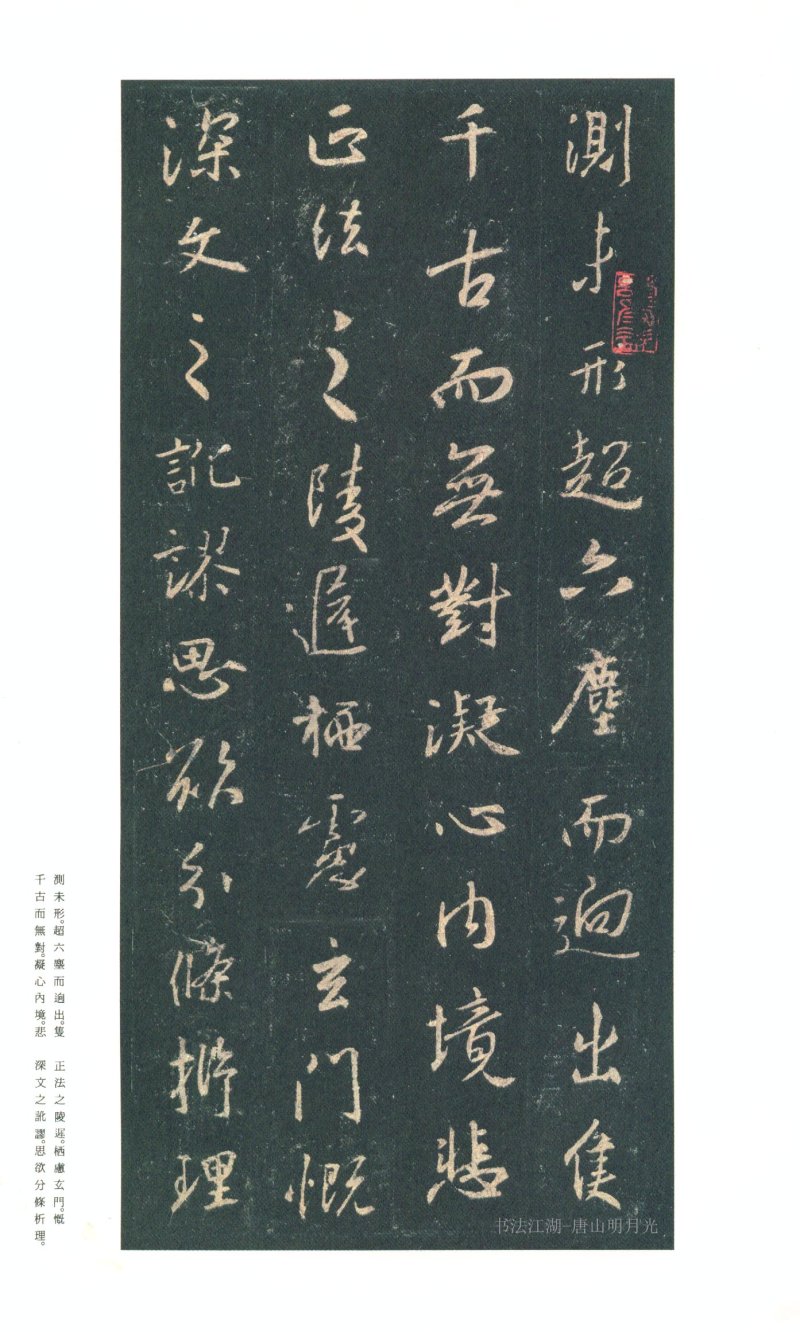 測未形超六塵而逈出隻
千古而無對凝心內境悲
正法之陵遲栖慮玄門慨
深文之訛謬思欲分條析理
測未形。超六塵而逈出。隻
千古而無對。凝心內境。悲
正法之陵遲。栖慮玄門。慨
深文之訛謬。思欲分條析理。
书法江湖-唐山明月光